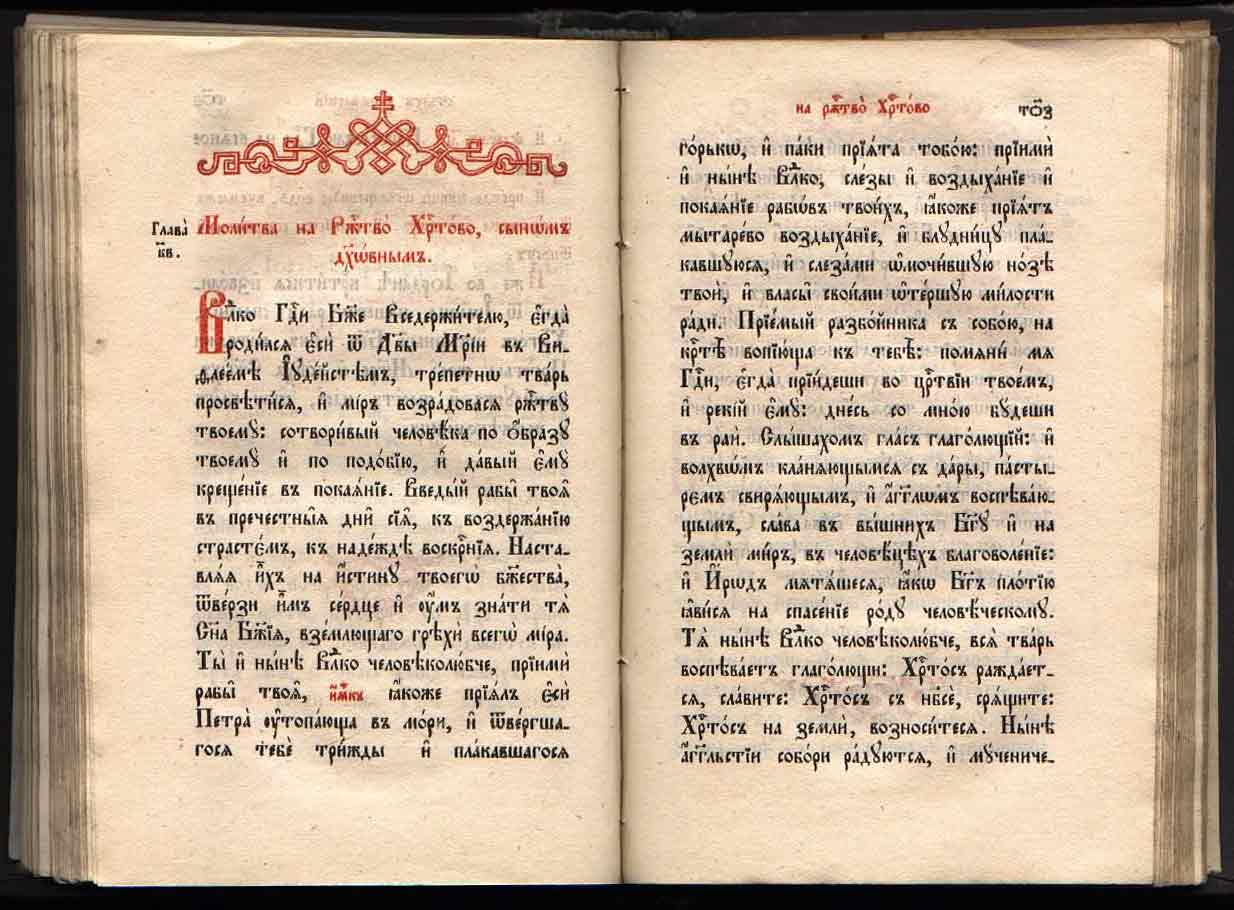 Глава̀
к҃в.
Моли́тва на Рж҇тво̀ Хрⷭ҇то́во, сынѡ́мъ
дꙋхѡ́внымъ.
Влⷣко Гдⷭ҇и Бж҃е Вседержи́телю, є҆гда̀
роди́лся є҆сѝ ѿ Дв҃ы Мр҃і́и въ Ви-
ѳлее́мѣ І҆ꙋде́йстѣмъ, тре́петнѡ тва́рь
просвѣти́ся, и҆ мі́ръ возра́довася рж҇твꙋ̀
твоемꙋ̀: сотвори́вый человѣ́ка по ѻ҆́бразꙋ
твоемꙋ̀ и҆ по подо́бію, и҆ да́вый є҆мꙋ̀
креще́ніе въ покаѧ́ніе. Введы́й рабы̑ твоѧ̑
въ пречє́стныѧ дни̑ сїѧ̑, къ воздержа́нію
страсте́мъ, къ наде́ждѣ воскрⷭ҇нїѧ. Наста-
влѧ́ѧ и҆̀хъ на и҆́стинꙋ твоегѡ̀ бж҇ества̀,
ѿве́рзи и҆̀мъ се́рдце и҆ ᲂу҆́мъ зна́ти тѧ̀
Сн҃а Бж҃їѧ, взе́млющаго грѣхѝ всегѡ̀ мі́ра.
Ты̀ и҆ ны́нѣ Влⷣко человѣколю́бче, прїимѝ
рабы̑ твоѧ̑, и҆́мⷬ҇къ ꙗ҆́коже прїѧ́лъ є҆сѝ
Петра̀ ᲂу҆топа́юща въ мо́ри, и҆ ѿве́ргша-
госѧ тебѐ три́жды и҆ пла́кавшагосѧ
на рж҇тво̀ Хрⷭ҇то́во
то҃з
го́рькѡ, и҆ па́ки прїѧ́та тобо́ю: прїимѝ
и҆ ны́нѣ Влⷣко, сле́зы и҆ воздыха́нїе и҆
покаѧ́нїе рабѡ́въ твои́хъ, ꙗ҆́коже прїѧ́тъ
мытаре́во воздыха́нїе, и҆ блꙋдни́цꙋ пла́-
кавшꙋюсѧ, и҆ слеза́ми ѡ҆мочи́вшꙋю но́зѣ
твоѝ, и҆ власы̑ свои́ми ѡ҆те́ршꙋю ми́лости
ра́ди. Прїе́мый разбо́йника съ собо́ю, на
крⷭ҇тѣ̀ вопїю́ща къ тебѣ̀: помѧнѝ мѧ
Гдⷭ҇и, є҆гда̀ прїи́деши во црⷭ҇твїи твое́мъ,
и҆ реки́й є҆мꙋ̀: дне́сь со мно́ю бꙋ́деши
въ раѝ. Слы́шахомъ гла́съ глаго́лющїй: и҆
волхвѡ́мъ кла́нѧющымсѧ съ да́ры, па́сты-
ремъ свирѧ́ющымъ, и҆ а҆́гг҃ломъ воспѣва́ю-
щымъ, сла́ва въ вы́шнихъ Бг҃ꙋ и҆ на
землѝ ми́ръ, въ человѣ́цѣхъ благоволе́нїе:
и҆ И҆́рѡдъ мѧтѧ́шесѧ, ꙗ҆́кѡ Бг҃ъ пло́тїю
ꙗ҆ви́сѧ на спасе́нїе ро́дꙋ человѣ́ческомꙋ.
Тѧ̀ ны́нѣ Влⷣко человѣколю́бче, всѧ̀ тва́рь
воспѣва́етъ глаго́лющи: Хрⷭ҇то́съ ражда́ет-
сѧ, сла́вите: Хрⷭ҇то́съ съ нб҃сѐ, срѧ́щите:
Хрⷭ҇то́съ на землѝ, возноси́тесѧ. Ны́нѣ
а҆́гг҃льстїи собо́ри ра́дꙋютсѧ, и҆ мꙋ́чениче-